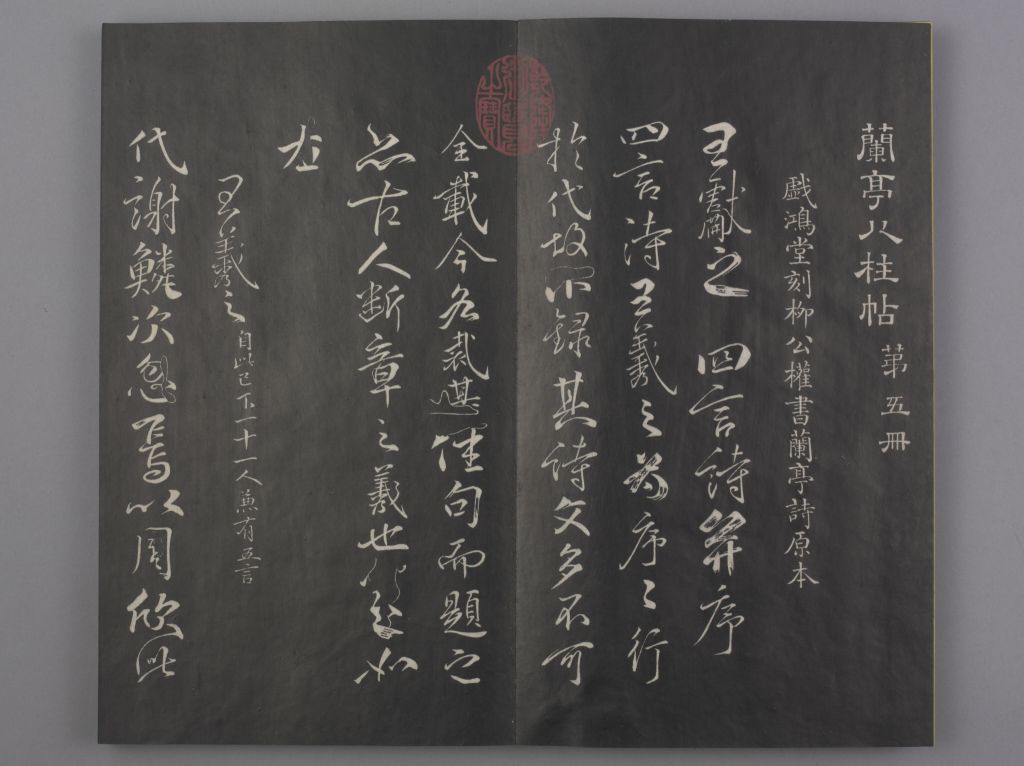 蘭亭八柱帖 苐五冊
戲鴻堂刻柳公權書蘭亭詩原本
王獻之 四言詩并序
四言詩王羲之為序序行
於代故不錄其詩文多不可
全載今各裁其佳句而題之
亦古人斷章之義也
左
王羲之 自此已下十一人兼有五言
代謝鱗次忽焉以周欣此